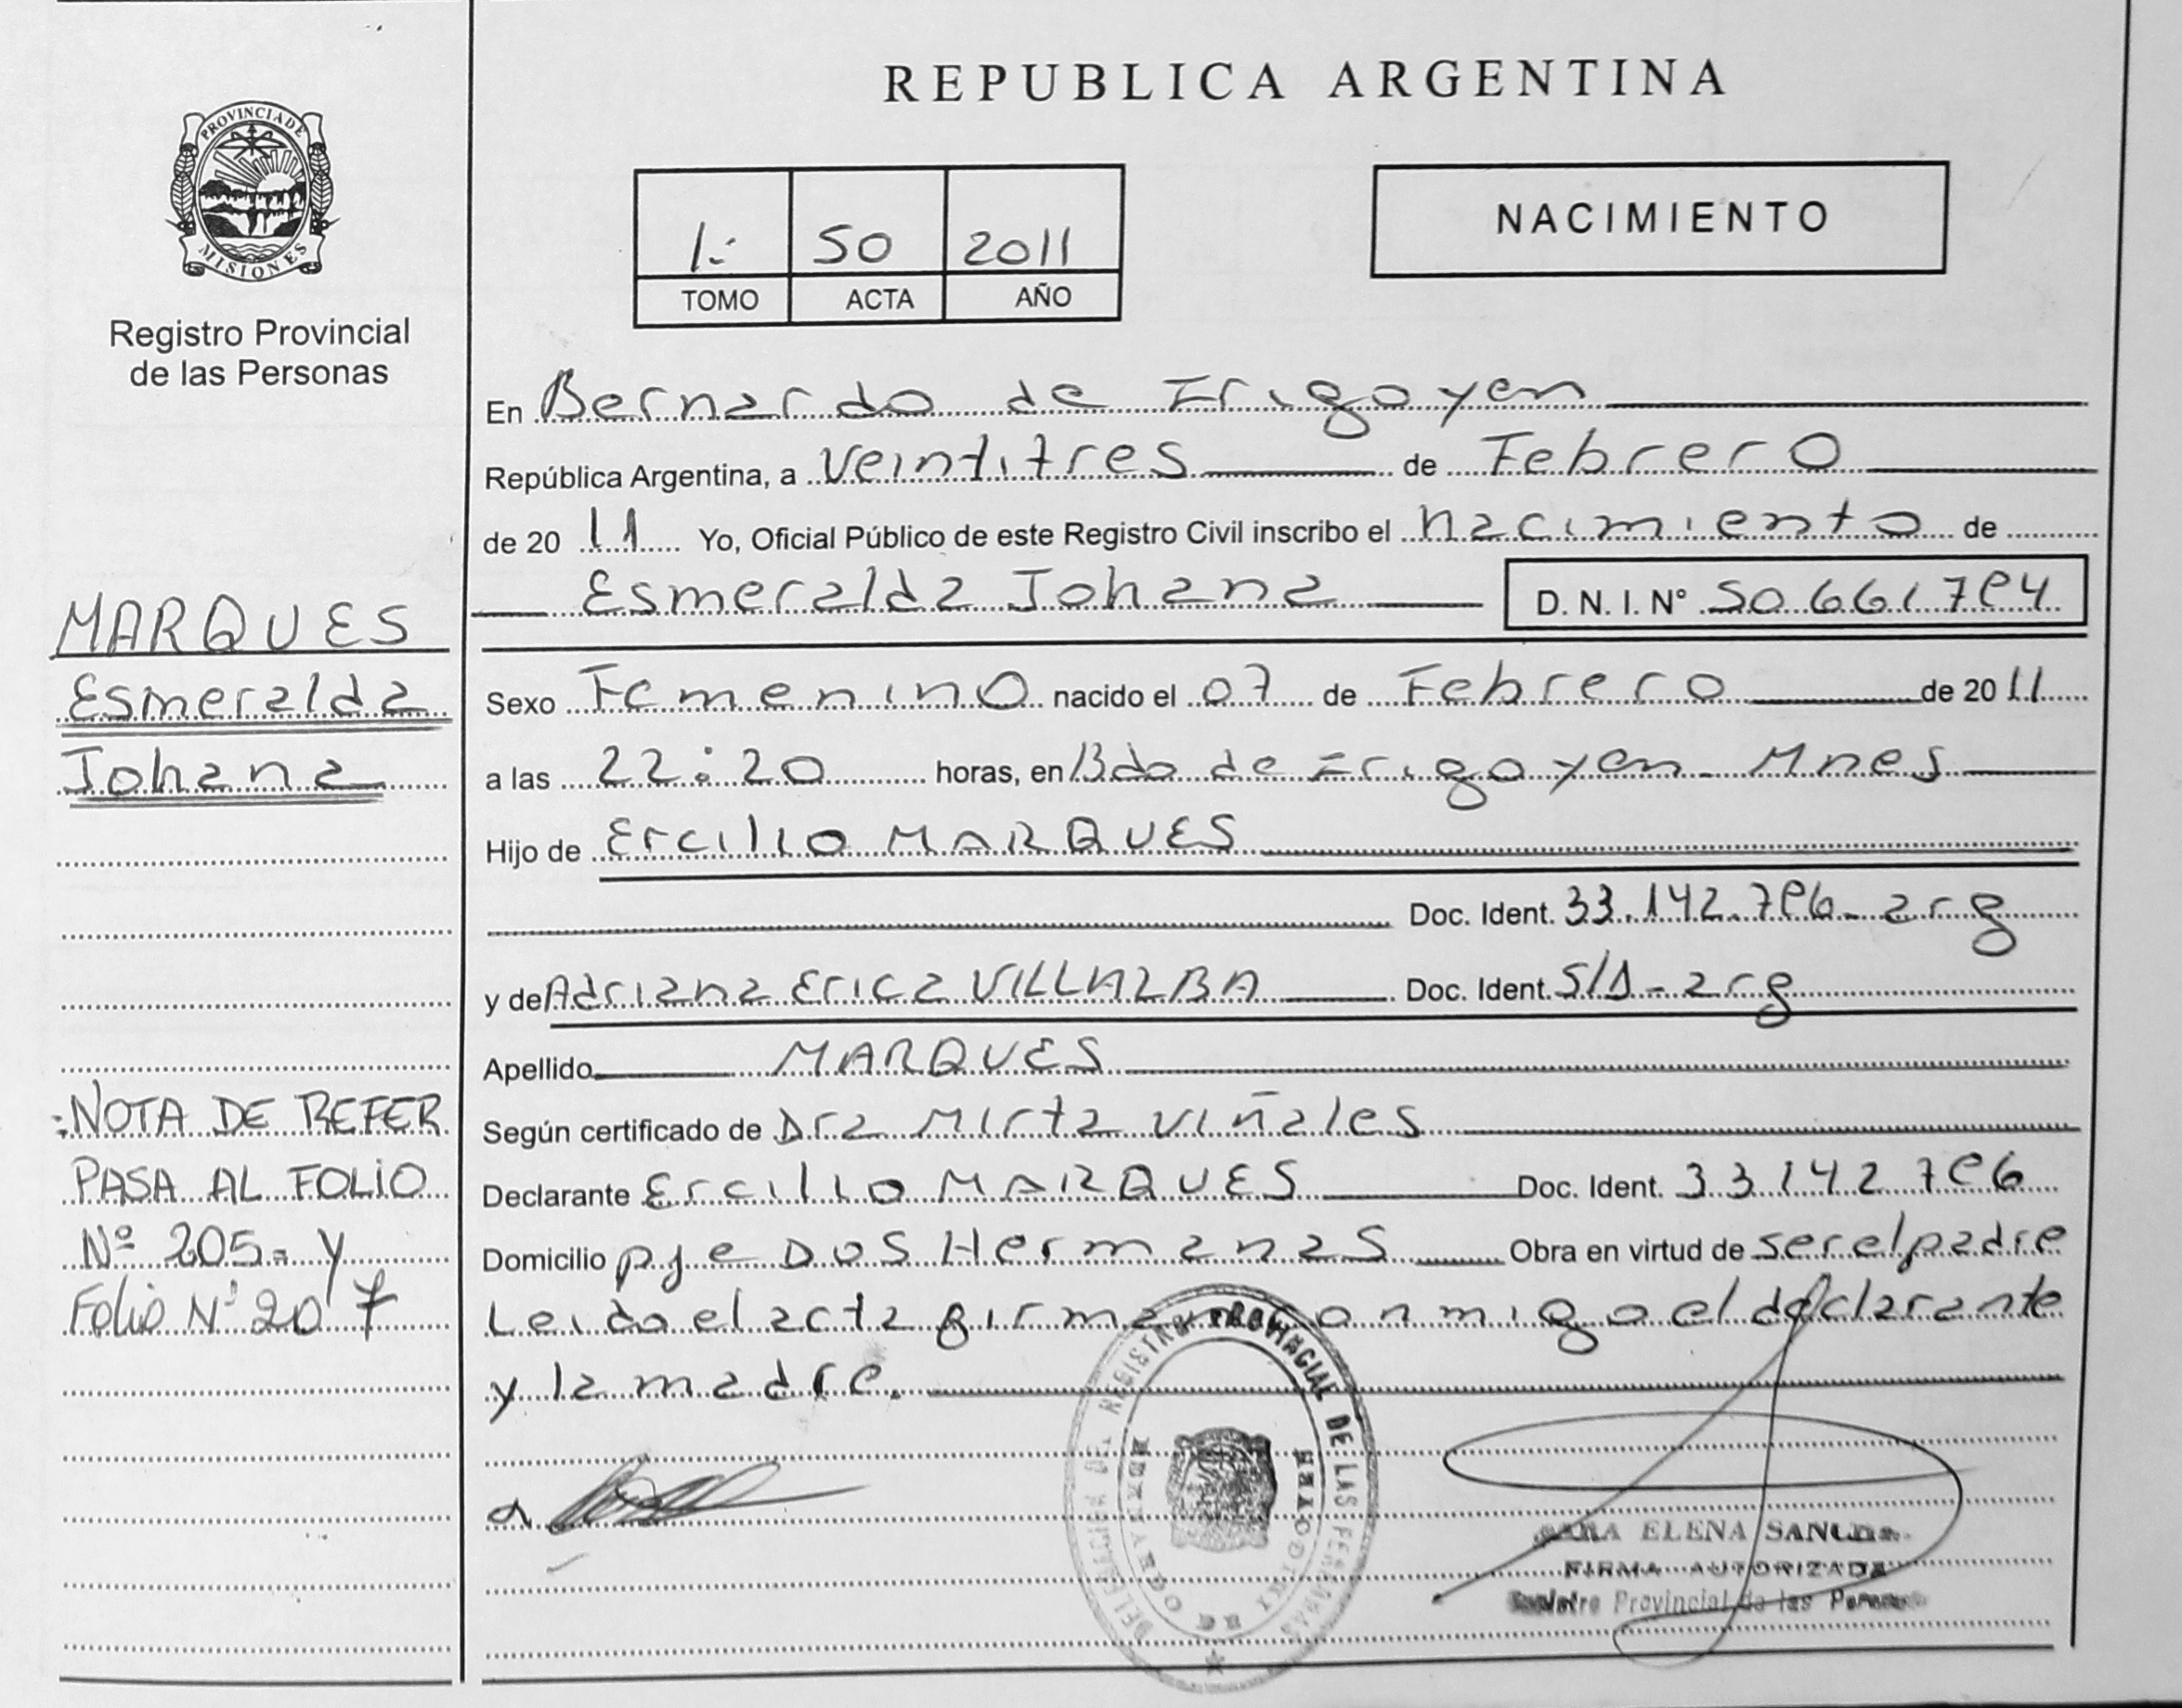 REPUBLICA ARGENTINA
PROVINCIA DE
MISIONES
Registro Provincial
de las Personas
1:
50
2011
TOMO
ACTA
AÑO
NACIMIENTO
En Bernardo de Irigoyen
República Argentina, a Veintitres de Febrero
de 20 11 Yo, Oficial Público de este Registro Civil inscribo el nacimiento de
Esmeralda Johana D.N.I.Nº 50.661.794
MARQUES
Esmeralda
Johana
Sexo Femenino nacido el 07 de Febrero de 20 11
a las 22:20 horas, en Bdo de Irigoyen - Mnes
Hijo de Ercilio MARQUES
Doc. Ident. 33.142.796 - arg
y de Adriana Erica VILLALBA Doc. Ident. S/D - arg
Apellido MARQUES
Según certificado de Dra Mirta Viñales
Declarante Ercilio MARQUES Doc. Ident. 33.142.796
Domicilio pje Dos Hermanas Obra en virtud de ser el padre
Leido el acta firman conmigo el declarante
y la madre.
NOTA DE REFER
PASA AL FOLIO
Nº 205 = y
Folio Nº 207
REGISTRO PROVINCIAL DE LAS PERSONAS
ELENA
FIRMA AUTORIZADA
Registro Provincial de las Personas